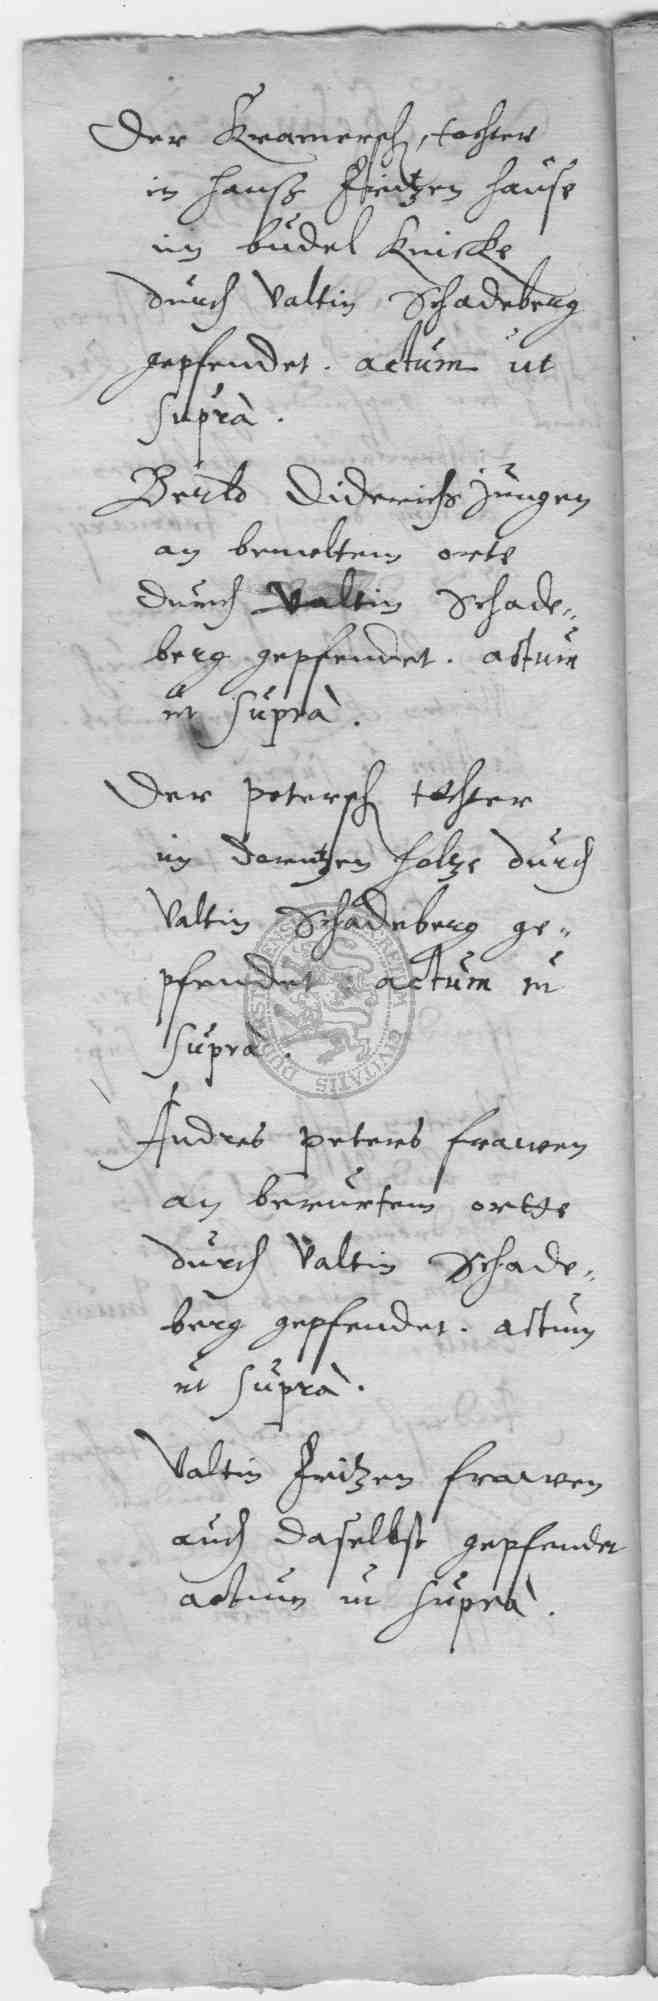 Der Kramersch tochter
in Hanss Fritzen hause
im budel Knicke
durch Valtin Schadeberg
gepfendet. actum ut
supra.
Berlt Diderichs Jungen
an bemeltem orte
durch Valtin Schade„
berg gepfendet. actum
ut supra.
Der petersch tochter
im holtze durch
Valtin Schadeberg ge„
pfendet. actum ut
supra.
Andres peters frawen
an berurtem ortte
durch Valtin Schade„
berg gepfendet. actum
ut supra.
Valtin Fritzen frawen
auch daselbst gepfendet
actum ut supra.
CIVITATIS